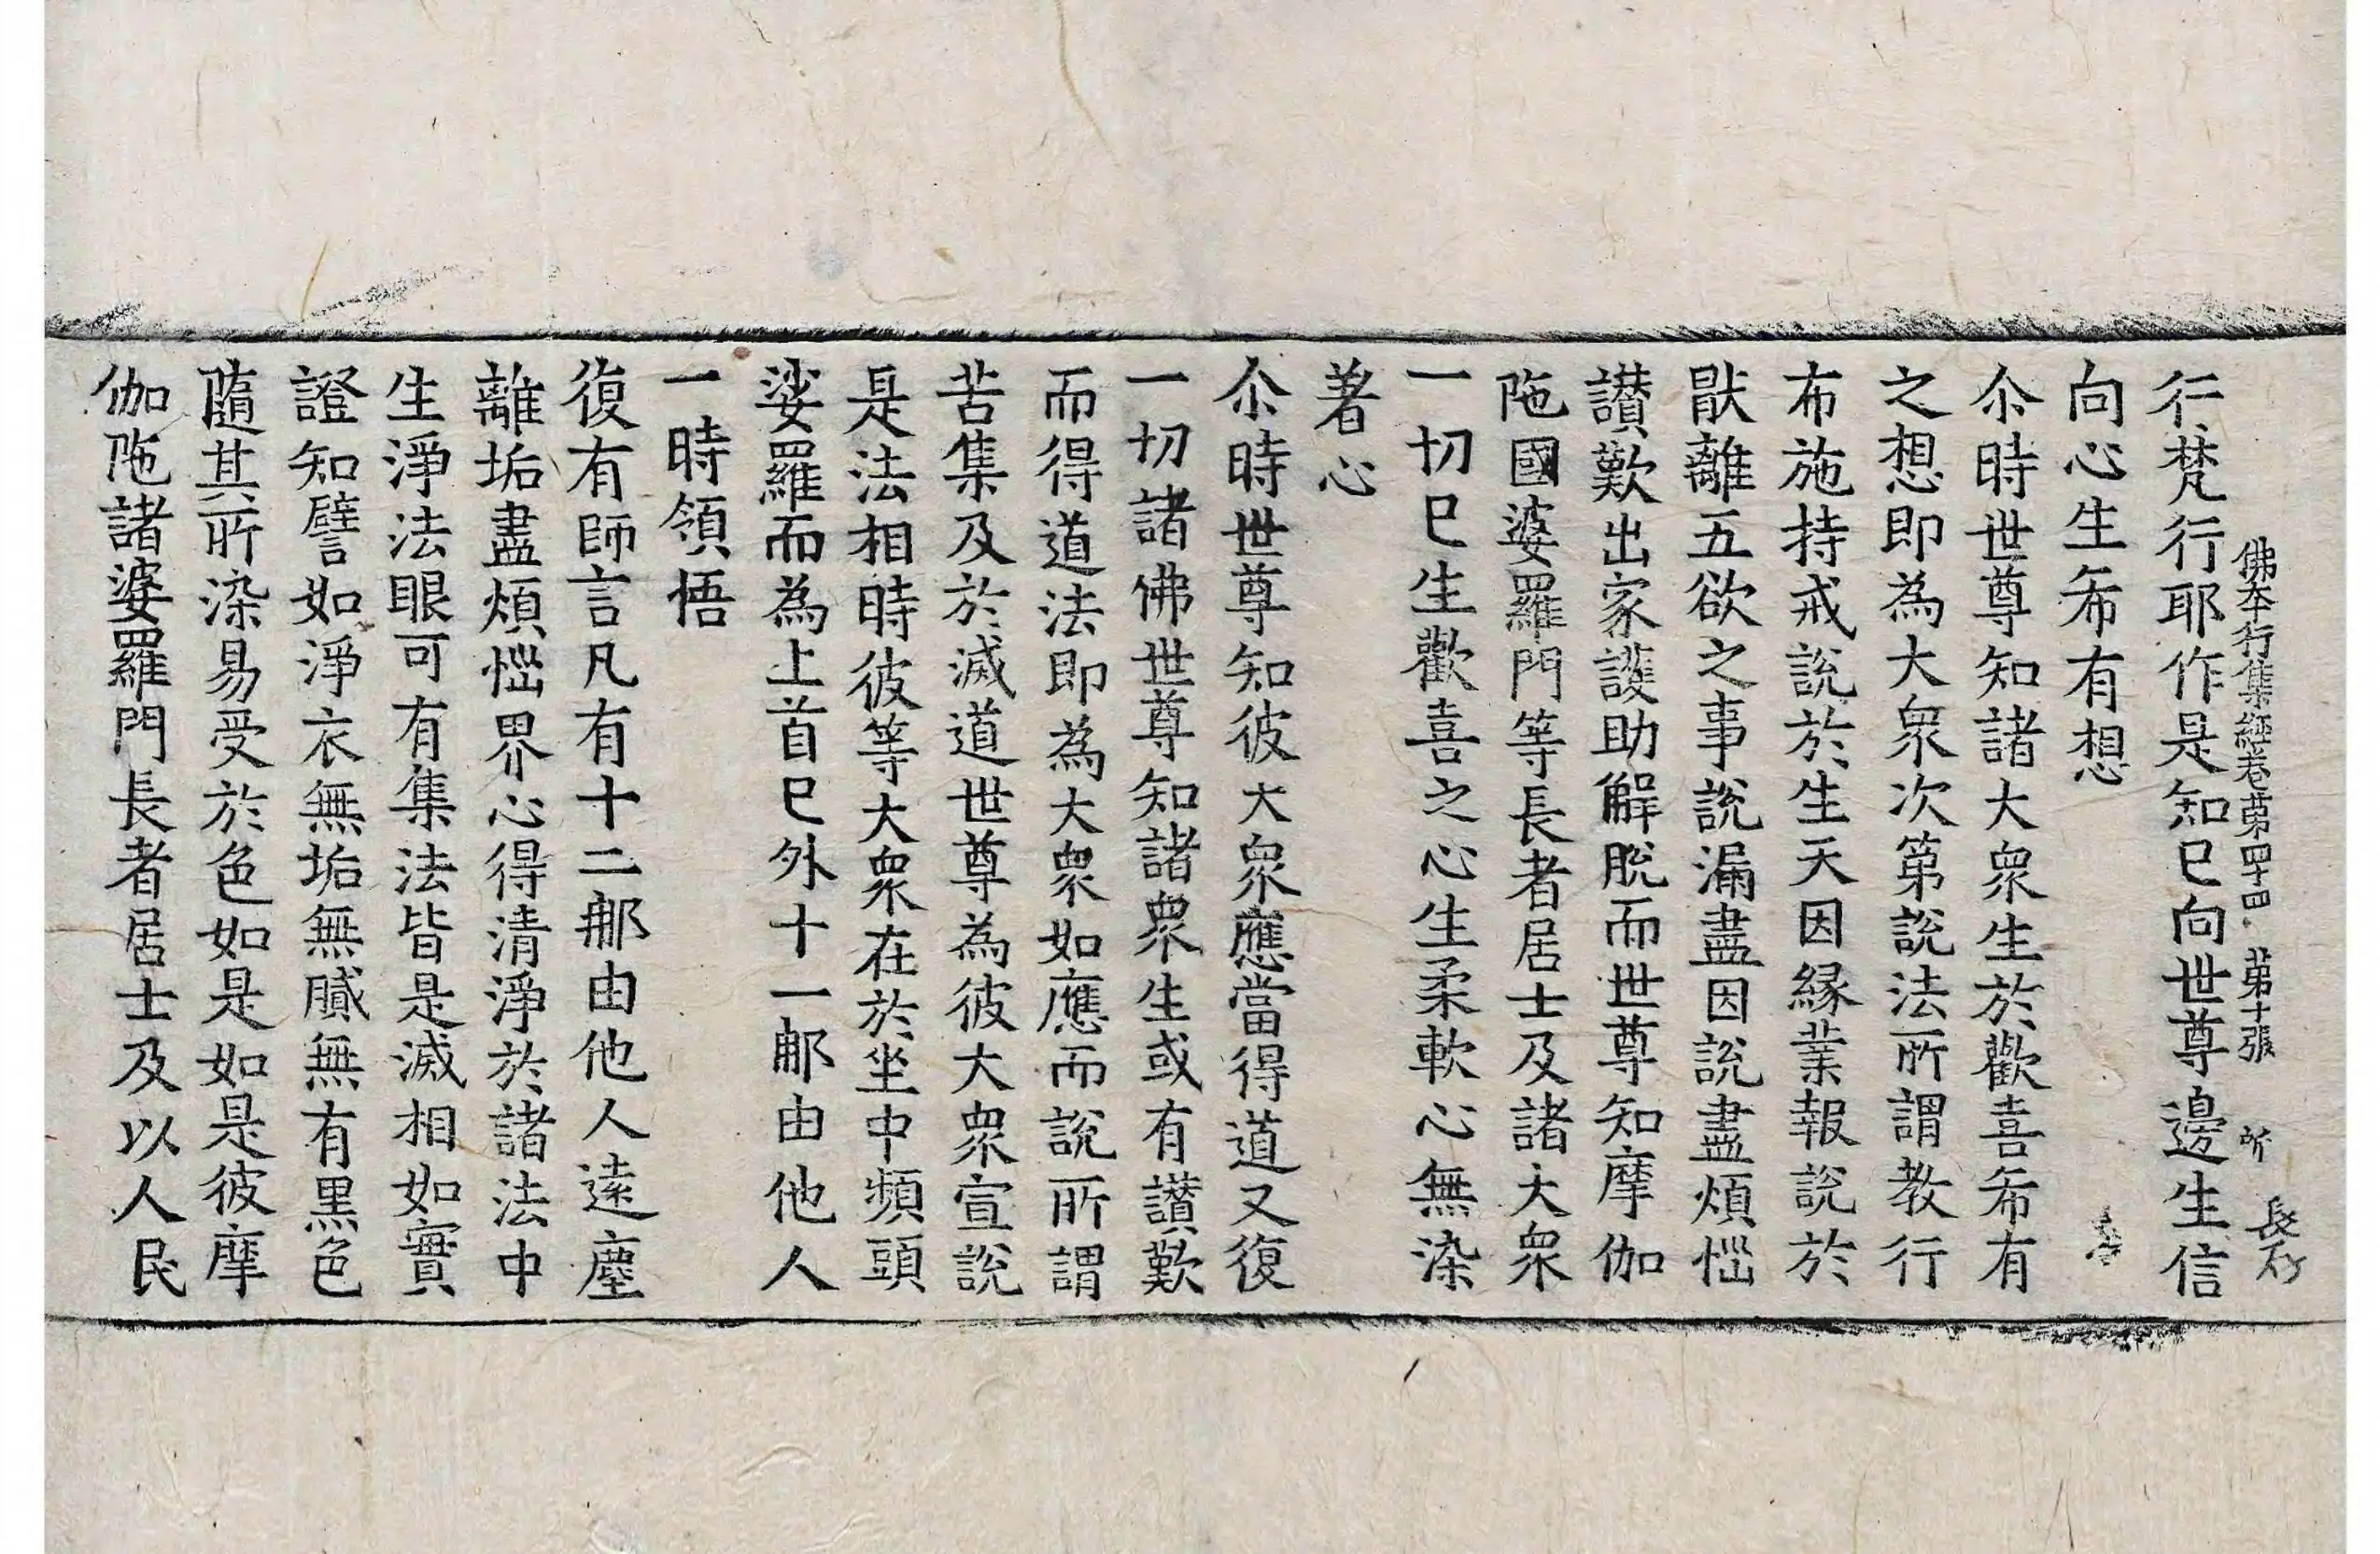 佛本行集經卷第四十四 第十張 所 長石
行梵行耶作是知已向世尊邊生信
向心生希有想
尒時世尊知諸大衆生於歡喜希有
之想即為大衆次第說法所謂教行
布施持戒說於生天因縁業報說於
猒離五欲之事說漏盡因說盡煩惱
讃歎出家護助解脫而世尊知摩伽
陁國婆羅門等長者居士及諸大衆
一切已生歡喜之心生柔軟心無染
著心
尒時世尊知彼大衆應當得道又復
一切諸佛世尊知諸衆生或有讃歎
而得道法即為大衆如應而說所謂
苦集及於滅道世尊為彼大衆宣說
是法相時彼等大衆在於坐中頻頭
娑羅而為上首已外十一那由他人
一時領悟
復有師言凡有十二那由他人遠塵
離垢盡煩惱界心得清淨於諸法中
生淨法眼可有集法皆是滅相如實
證知譬如淨衣無垢無膩無有黒色
隨其所染易受於色如是如是彼摩
伽陁諸婆羅門長者居士及以人民